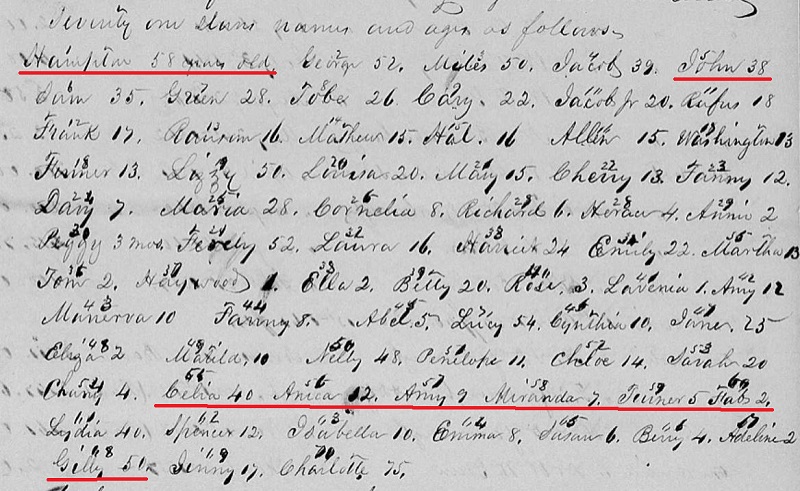 Seventy one slaves names and ages as follows.
Hampton 58 years old, George 52. Miles 50. Jacob 39. John 38
Sam 35. Green 28. Tobe 26 Cary. 22. Jacob Jr 20. Rufus 18
Frank 17. Ransom 16. Mathew 15. Nat. 16 Allen 15. Washington 13
Fenner 13. Lizzy 50. Louisa 20. Mary 15. Cherry 13. Fanny 12.
Davy 7. Maria 28. Cornelia 8. Richard 6. Horace 4. Annie 2
Peggy 3 mos. Ferely 52. Laura 16. 24 Emily 22. Martha 13
Tom 2. Haywood 1. Ella 2. Betty 20. Rose. 3. Lavenia 1. Amy 12
Manerva 10 Fanny 8. Abel 5. Lucy 54. Cynthia 10. Jane. 25
Eliza 2 Matilda 10 Nelly 48. Penelope 11. Chloe 14. Sarah 20
4. Celia 40 Anica 12. Amy 9 Miranda 7. Fenner 5 2.
Lydia 40. Spencer 12. Isabella 10. Emma 8. Susan 6. Berry 4. Adeline 2
Gilly 50. Jenny 17. Charlotte 75.